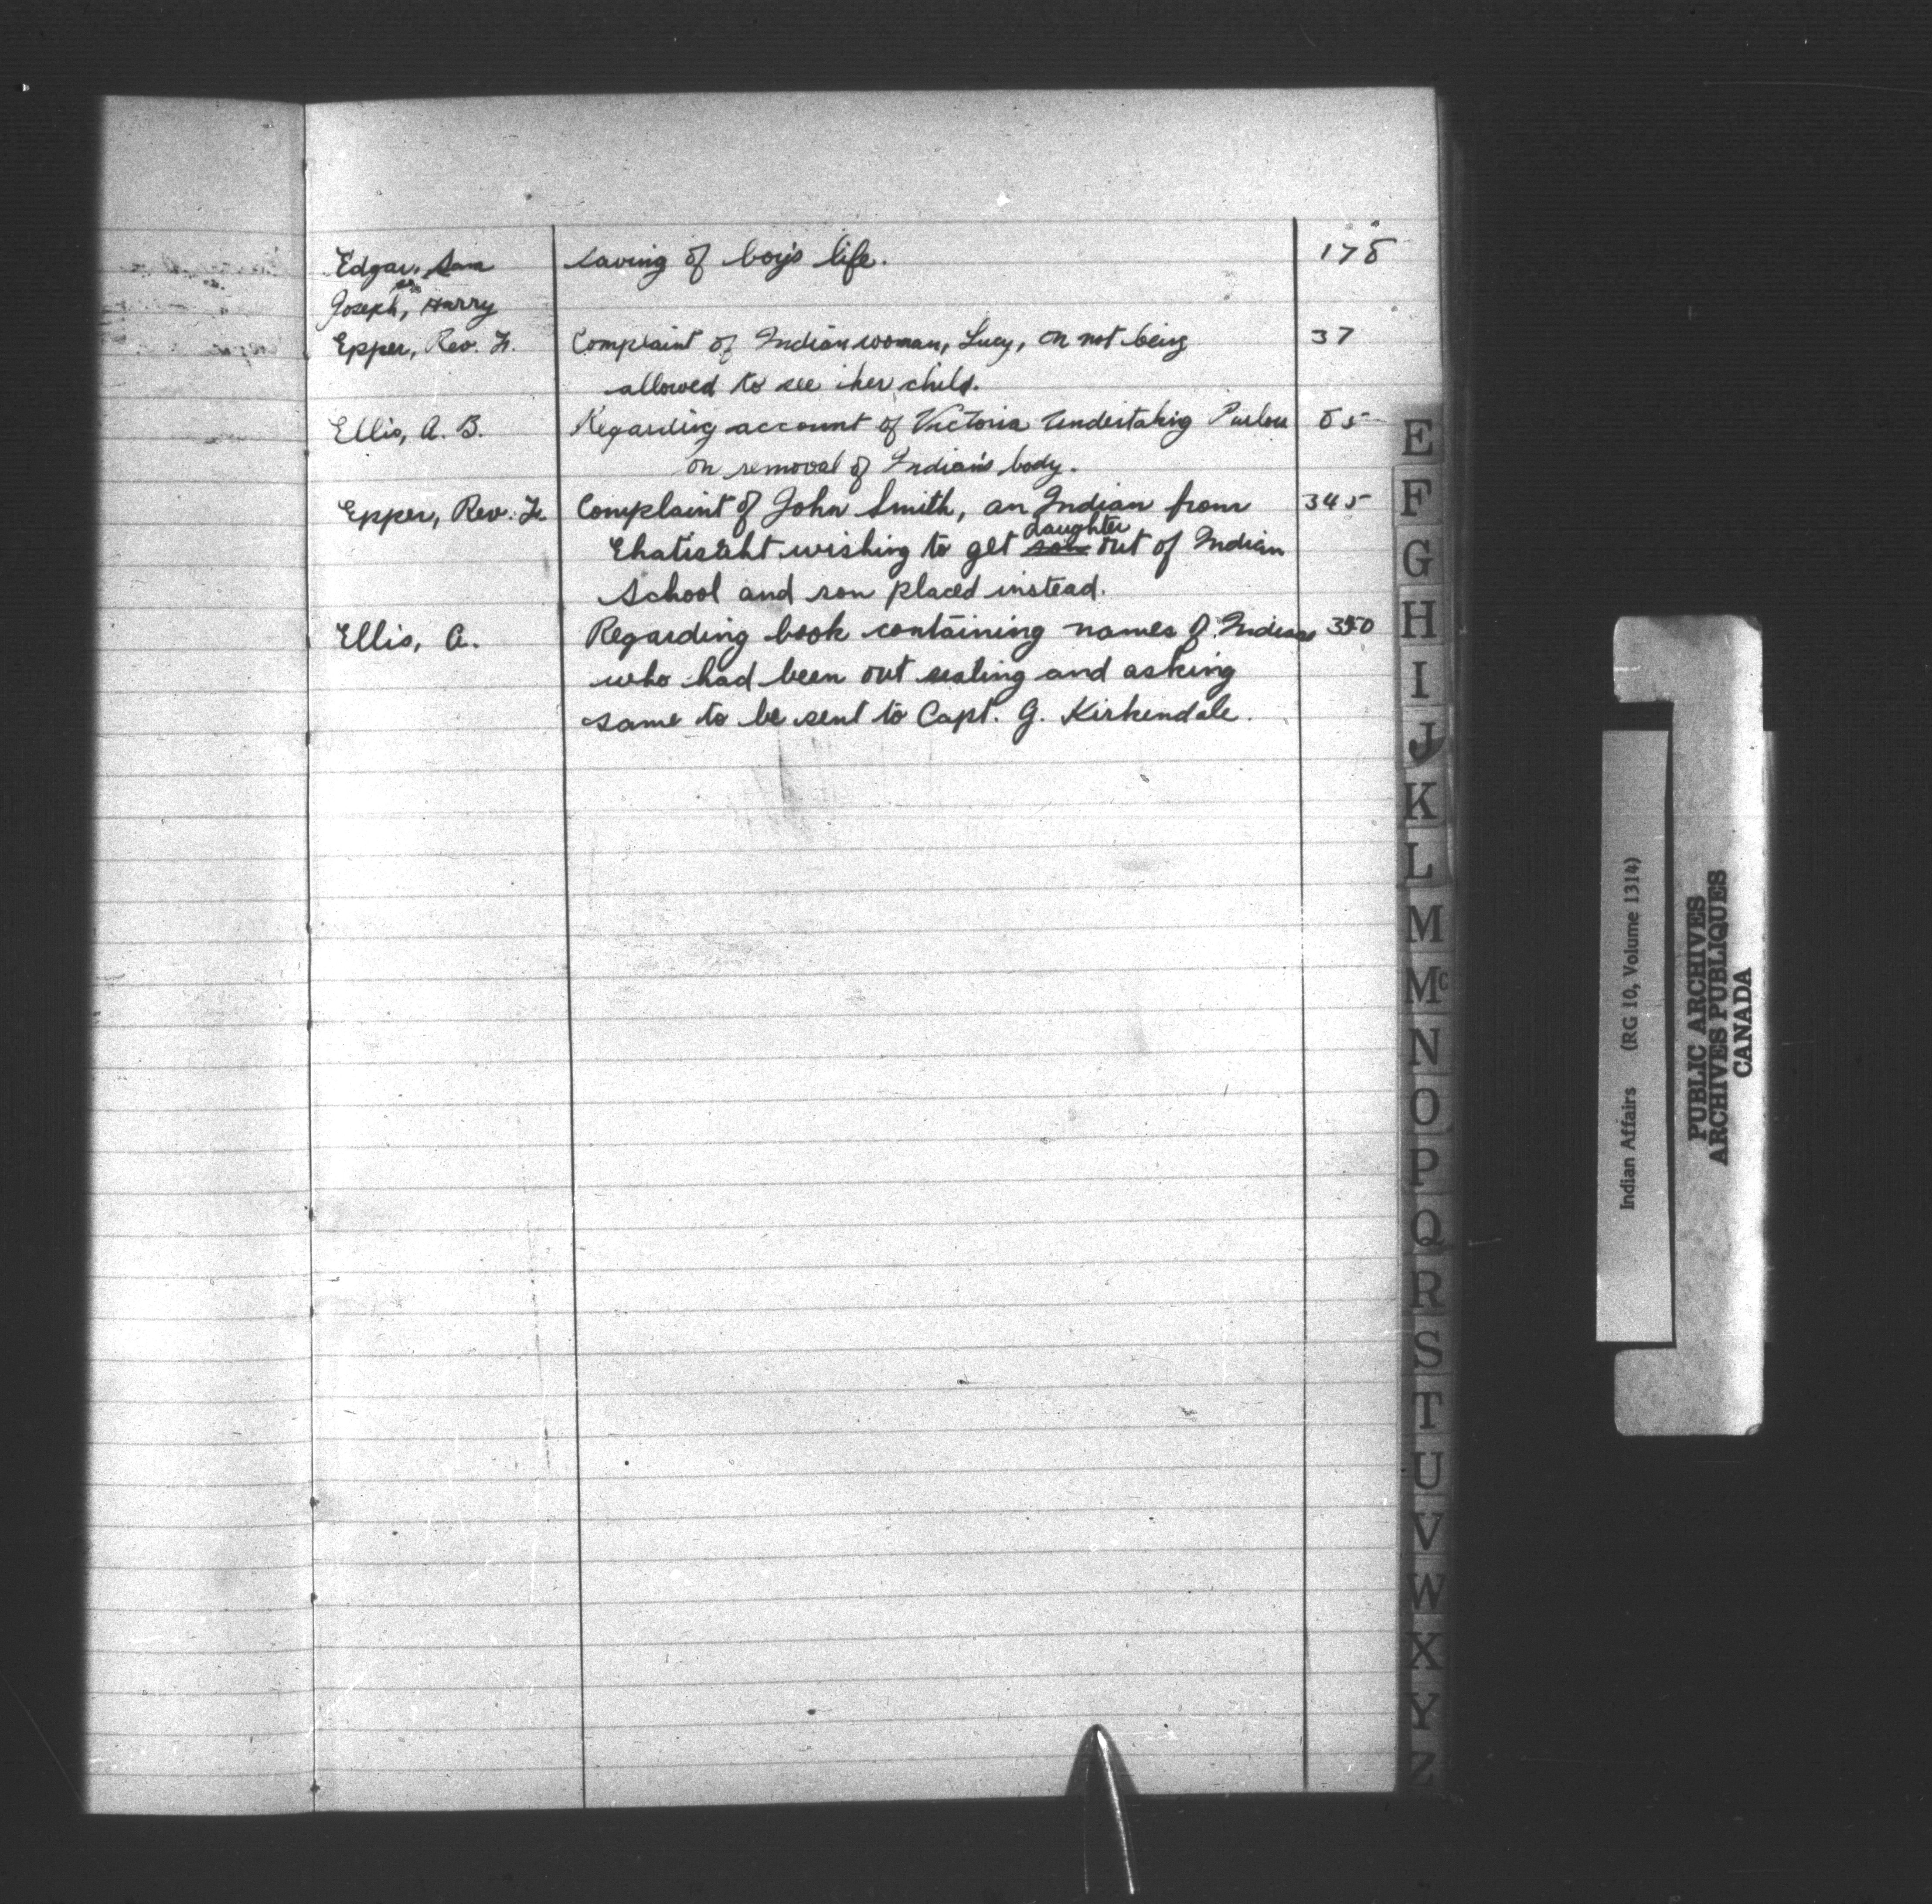 Edgar, Sam saving of boy's life. 178
Joseph, Harry
Epper, Rev. Fr. Complaint of Indian woman, Lucy, on not being 37
allowed to see her child.
Ellis, A. B. Regarding account of Victoria Undertaking Parlors 85
on removal of Indian's body.
Epper, Rev. Fr. Complaint of John Smith, an Indian from 345
daughter
Ehatisaht wishing to get son out of Indian
School and son placed instead.
Ellis, A. Regarding book containing names of Indians 350
who had been out sealing and asking
same to be sent to Capt. G. Kirkendale.
E
F
G
H
I
J
K
L
M
Mc
N
O
P
Q
R
S
T
U
V
W
X
Y
Z
Indian Affairs (RG 10, Volume 1314)
PUBLIC ARCHIVES
ARCHIVES PUBLIQUES
CANADA